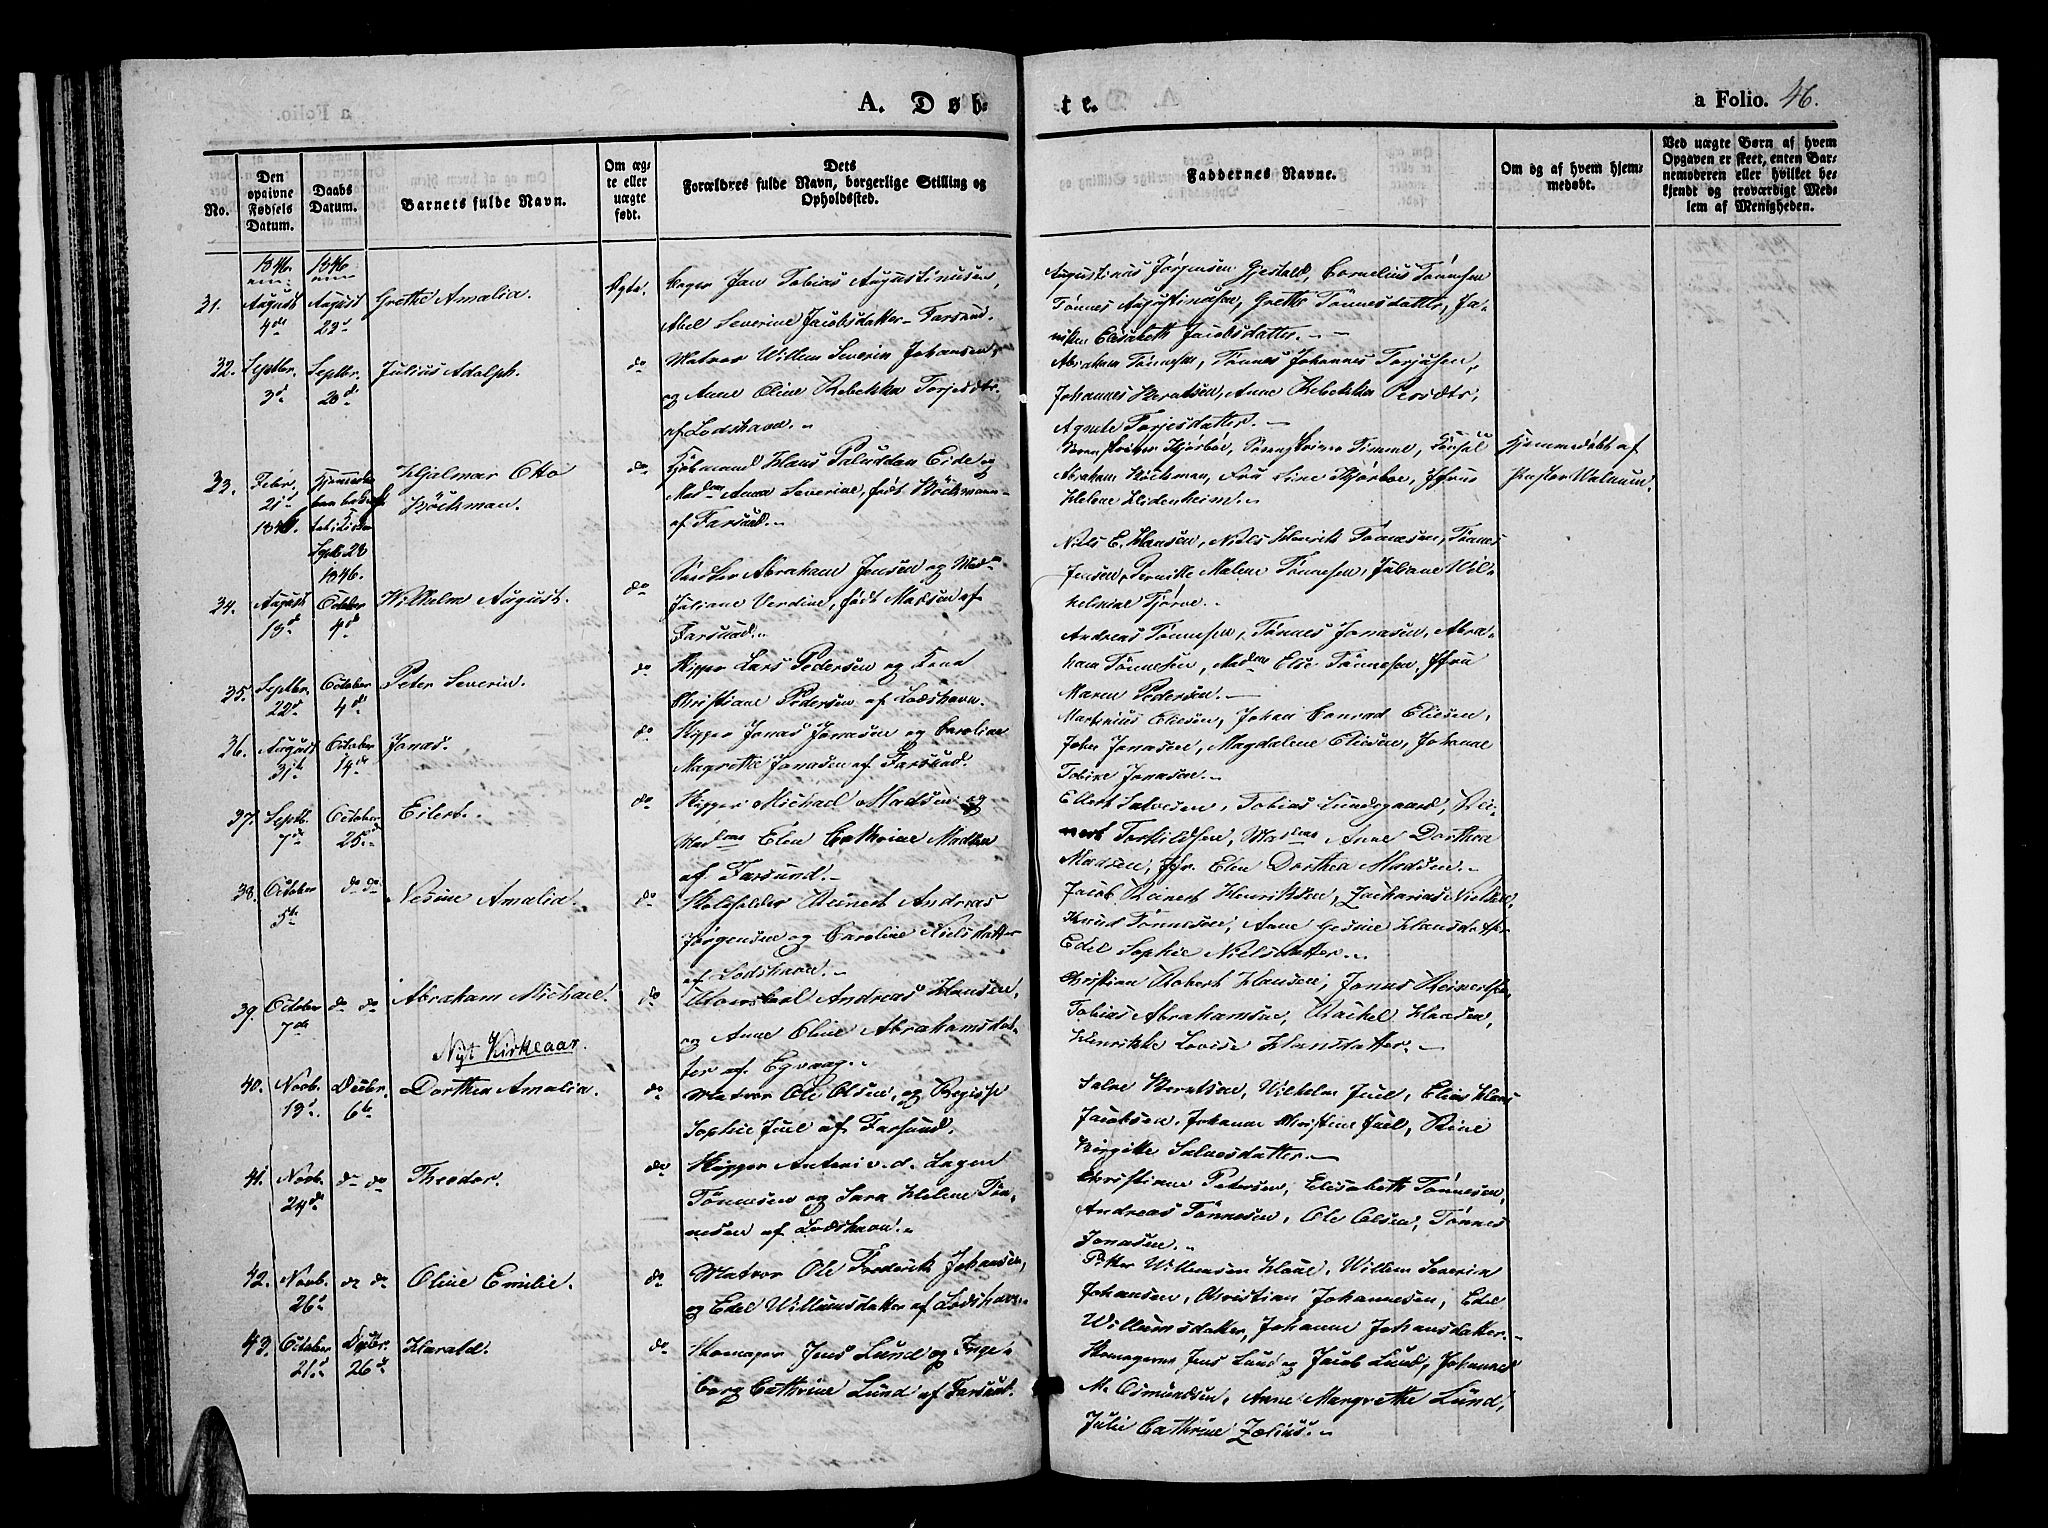 A. Døb-
te.
a Folio. 46.
No.
Den opgivne Fødsels Datum.
Daabs Datum.
Barnets fulde Navn.
Om ægte eller uægte født.
Dets Forældres fulde Navn, borgerlige Stilling og Opholdssted.
Faddernes Navne.
Om og af hvem hjemmedøbt.
Ved uægte Børn af hvem Opgaven er skeet, enten Barnemoderen eller hvilket bekjendt og troværdigt Medlem af Menigheden.
1846. 1846
31. August 4de August 23d Grethe Amalia. Ægte. Jan Tobias Augustinusen,
Abel Severine Jacobsdatter Farsund.
Augustinus Jørgensen Gjestad, Cornelius Tønnesen
Tønnes Augustinusen, Grethe Tønnesdatter, Ja-
Elisabeth Jacobsdatter.
32. Septbr. 3d Septbr. 20d Julius Adolph. do Matros Willem Severin Johansen
og Anne Oline Rebekka Torjesdtr.
af Lodshavn.
Abraham Tønnesen, Tønnes Johannes Torjusen,
Johannes Berntsen, Anne Rebekka
Agnete Torjesdatter.
33. Febr. 21d 1846. Septb. 23 1846. Hjalmar Otto
Bøckman.
do Kjøbmand Hans Paludan Eide og
Madm Anna Severine, født Bøckmann
af Farsund.
Abraham Bøckman, Fru Line
Helene Lidenheim.
Hjemmedøbt af
Pastor Walnum.
34. August 13d October 4d Wilhelm August. do Abraham Jensen og Madm
Juliane Verdine, født Madsen af
Farsund.
Niels E. Hansen, Niels Henrik Tønnesen, Tønnes
Jensen, Pernille Malene Tønnesen, Juliane Wil-
helmine Tjørve.
35. Septbr. 22d October 4d Peter Severin. do Skipper Lars Pedersen og Kone
Christiane Pedersen af Lodshavn.
Andreas Tønnesen, Tønnes Jonasen, Abra-
ham Tønnesen, Madm Elie Tønnesen, Jfru
Maren Pedersen.
36. August 31te October 14de Jonas. do Skipper Jonas Jonasen og Caroline
Magrethe Jonasen af Farsund.
Martinius Eliesen, Johan Conrad Eliesen,
John Jonasen, Magdalene Eliesen, Johanne
Tobine Jonasen.
37. Septb. 7de October 25de Eilert. do Skipper Michael Madsen og
Mad. Elen Cathrine Madsen
af Farsund.
Ellert Salvesen, Tobias Lundegaard, Rei-
nert Torkildsen, Anne Dorthea
Madsen, Jfr. Elen Dorthea Madsen.
38. October 5te do do Nesine Amalia. do Skoleholder Reinert Andreas
Jørgensen og Caroline Nielsdatter
af Lodshavn.
Jacob Reinert Henriksen, Zacharias Nielsen,
Knud Tønnesen, Anne Gesine Hansdatter
Edel Sophie Nielsdatter.
39. October 7de do do Abraham Michael. do Andreas Hansen,
og Anne Oline Abrahamsdat-
ter af Egvaag.
Christian Robert Hansen, Jonas Reinertsen,
Tobias Abrahamsen, Rachel Hansen,
Henrikke Lovise Hansdatter.
Nyt Kirkeaar.
40. Novb. 13d Decbr. 6te Dorthea Amalia. do Matros Ole Olsen, og Regisse
Sophie Juel af Farsund.
Salve Berntsen, Wilhelm Juel, Elias Hans
Jacobsen, Johanne Christine Juel, Rine
Birgitte Salvesdatter.
41. Novb. 24de do do Theodor. do Skipper Anteni v. d. Lagen
Tønnesen og Sara Helene Tøn-
nesen af Lodshavn.
Christiane Petersen, Elisabeth Tønnesen,
Andreas Tønnesen, Ole Olsen, Tønnes
Jonasen.
42. Novb. 26d do do Oline Emilie. do Matros Ole Frederik Johansen,
og Edel Willumsdatter af Lodshavn.
Petter Willumsen Haae, Willem Severin
Johansen, Christian Johannesen, Edel
Willumsdatter, Johanne Johansdatter.
43. October 21d Decbr. 26d Harald. do Skomager Jens Lund og Inge-
borg Cathrine Lund af Farsund.
Skomagerne Jens Lund og Jacob Lund, Johannes
M. Osmundsen, Anne Margrethe Lund,
Julie Cathrine Zelius.